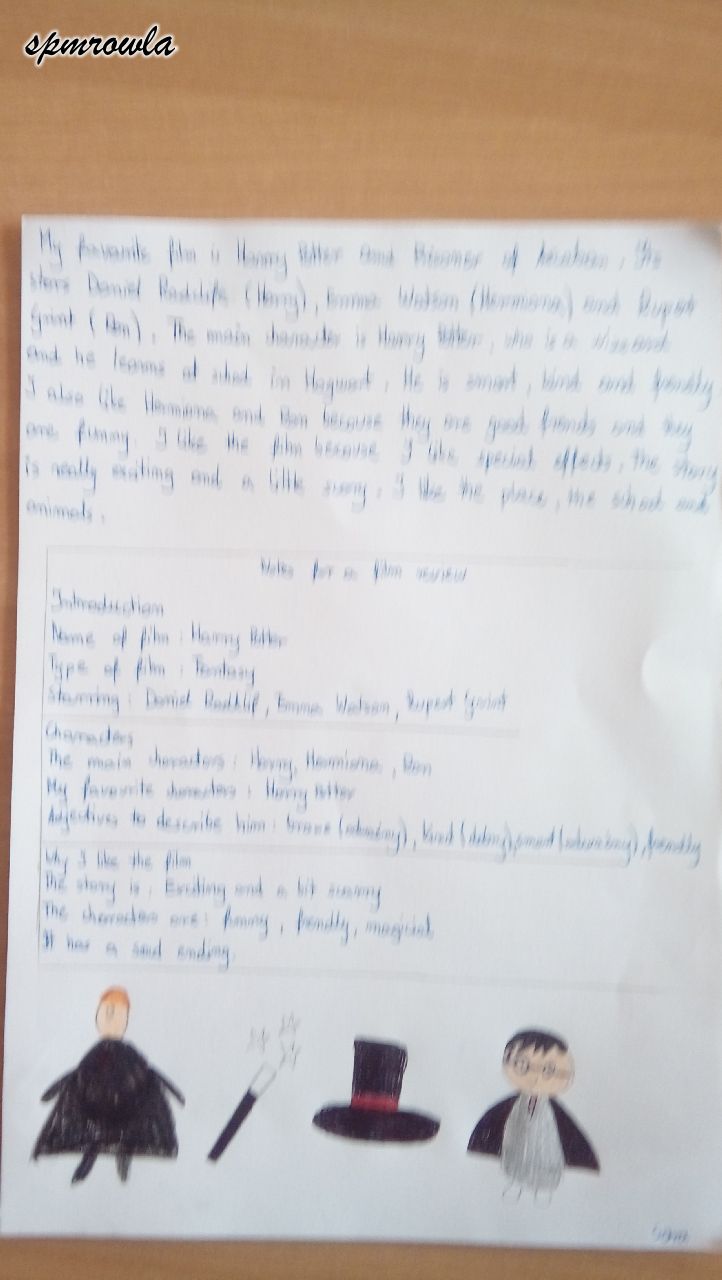 spmrowla
My favourite film is Harry Potter and Prisoner of Azkaban. The
stars Daniel Radclife (Harry), Emma Watson (Hermiona) and Rupert
Grint (Ron). The main character is Harry Potter, who is a wizzard
and he learns at school in Hogwart. He is smart, kind and frendly
I also like Hermiona and Ron because they are good friends and they
are funny. I like the film because I like special effects, the story
is really exciting and a little scarry. I like the place, the school and
animals.
Notes for a film review
Introduction
Name of film: Harry Potter
Type of film: Fantasy
Starring: Daniel Radklif, Emma Watson, Rupert Grint
Characters
The main characters: Harry, Hermiona, Ron
My favourite characters: Harry Potter
Adjectives to describe him: brave, kind, smart, frendly
Why I like the film
The story is: Exciting and a bit scarry
The characters are: funny, frendly, magical
It has a sad ending.